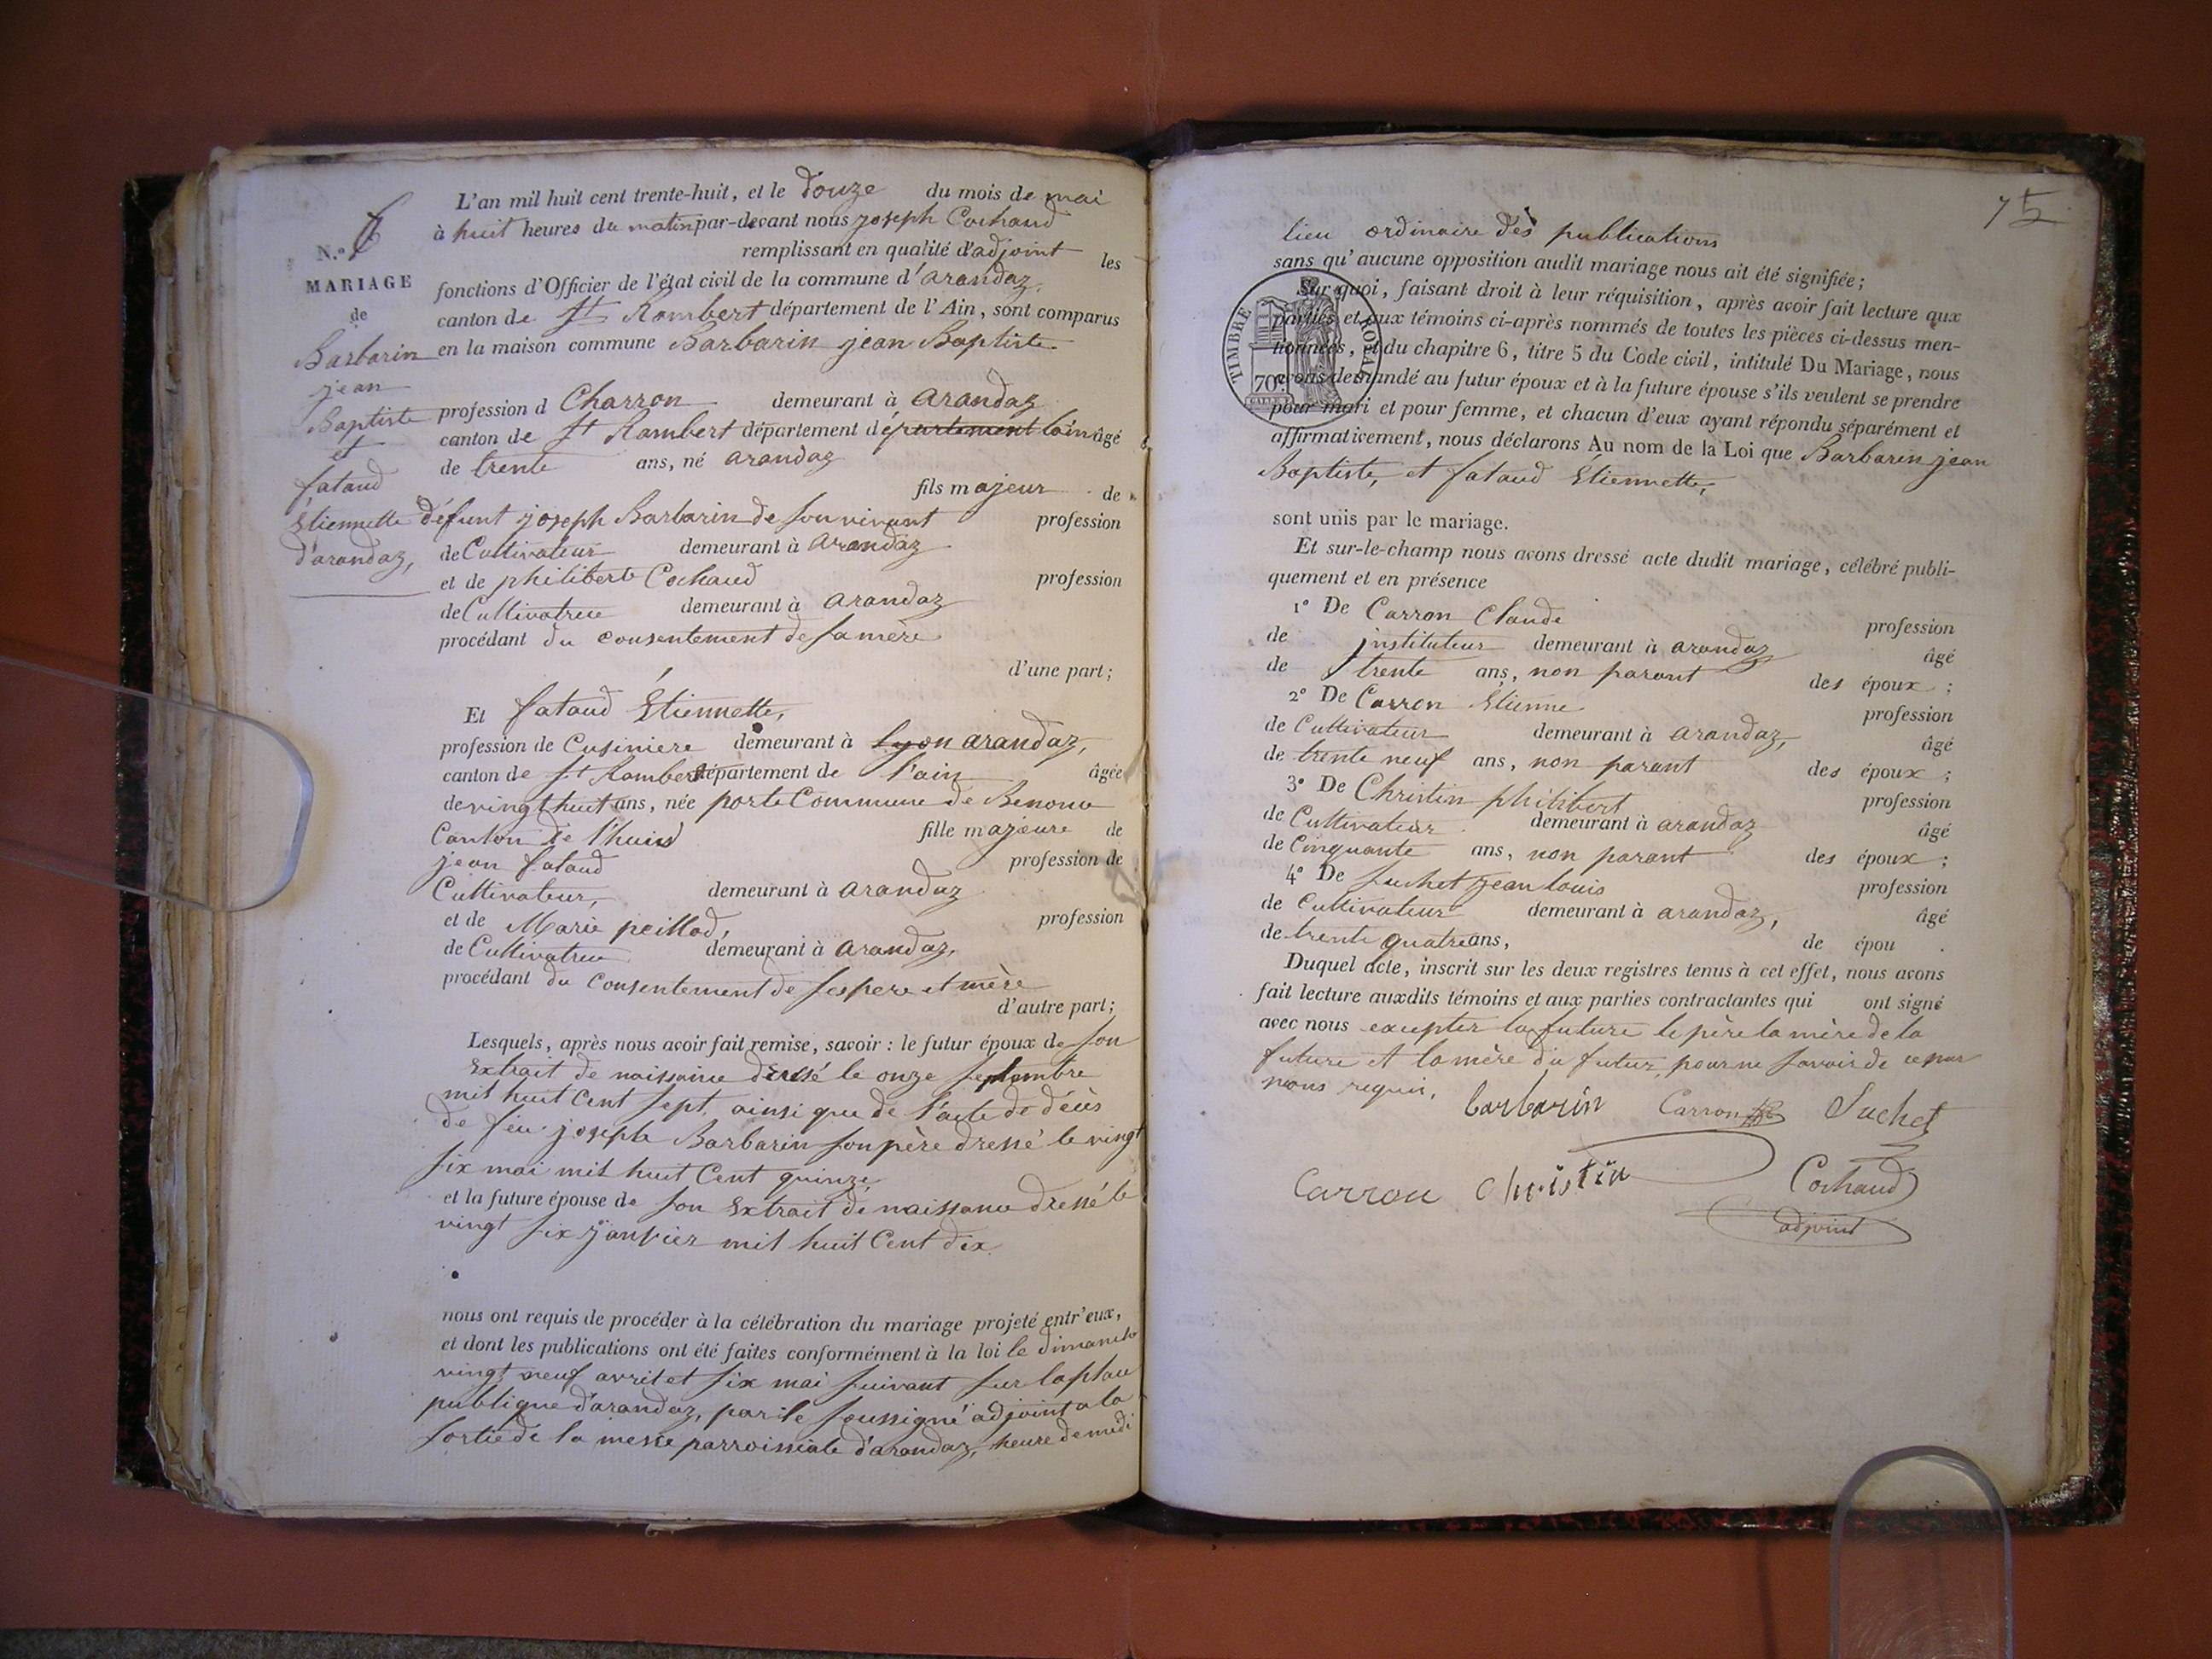 L'an mil huit cent trente-huit, et le douze du mois de mai
à huit heures du matin par-devant nous joseph Cochaud
remplissant en qualité d'adjoint les
fonctions d'Officier de l'état civil de la commune d'arandaz.
canton de St Rambert département de l'Ain, sont comparus
en la maison commune Barbarin jean Baptiste
profession d Charron demeurant à arandaz
canton de St Rambert département département loin âgé
de trente ans, né arandaz
fils majeur de
défunt joseph Barbarin de son vivant profession
de Cultivateur demeurant à arandaz
et de philiberte Cochaud profession
de Cultivatrice demeurant à arandaz
procédant du consentement de sa mère
d'une part;
Et fataud Étiennette,
profession de Cusiniere demeurant à Lyon arandaz,
canton de St Rambert département de l'ain âgée
de vingt huit ans, née porte Commune de Benone
Canton de l'huis fille majeure de
jean fataud profession de
Cultivateur, demeurant à arandaz
et de Marie peillod, profession
de Cultivatrice demeurant à arandaz,
procédant du Consentement de ses pere et mère
d'autre part;
Lesquels, après nous avoir fait remise, savoir : le futur époux de son
Extrait de naissance dressé le onze septembre
mil huit Cent sept, ainsi que de l'acte de décès
de feu joseph Barbarin son père dressé le vingt
six mai mil huit Cent quinze,
et la future épouse de son Extrait de naissance dressé le
vingt six janvier mil huit Cent dix
nous ont requis de procéder à la célébration du mariage projeté entr'eux,
et dont les publications ont été faites conformément à la loi le dimanche
vingt neuf avril et six mai suivant sur la place
publique d'arandaz, par le soussigné adjoint a la
sortie de la messe parroissiale d'arandaz, heure de midi
N.º 6
MARIAGE
de
Barbarin
jean
Baptiste
et
fataud
Étiennette
d'arandaz,
75
lieu ordinaire des publications
sans qu'aucune opposition audit mariage nous ait été signifiée;
Sur quoi, faisant droit à leur réquisition, après avoir fait lecture aux
parties et aux témoins ci-après nommés de toutes les pièces ci-dessus men-
tionnées, et du chapitre 6, titre 5 du Code civil, intitulé Du Mariage, nous
avons demandé au futur époux et à la future épouse s'ils veulent se prendre
pour mari et pour femme, et chacun d'eux ayant répondu séparément et
affirmativement, nous déclarons Au nom de la Loi que Barbarin jean
Baptiste, et fataud Étiennette,
sont unis par le mariage.
Et sur-le-champ nous avons dressé acte dudit mariage, célébré publi-
quement et en présence
1º De Carron Claude profession
de instituteur demeurant à arandaz âgé
de trente ans, non parant des époux ;
2º De Carron Etienne profession
de Cultivateur demeurant à arandaz, âgé
de trente neuf ans, non parant des époux ;
3º De Christin philibert profession
de Cultivateur demeurant à arandaz âgé
de Cinquante ans, non parant des époux ;
4º De Suchet jean louis profession
de Cultivateur demeurant à arandaz, âgé
de trente quatre ans, de épou .
Duquel acte, inscrit sur les deux registres tenus à cet effet, nous avons
fait lecture auxdits témoins et aux parties contractantes qui ont signé
avec nous excepter la future le père la mère de la
future et la mère du futur, pour ne savoir de ce par
nous requis,
barbarin Carron Suchet
Carron Christin Cochaud
adjoint
TIMBRE ROYAL
70c